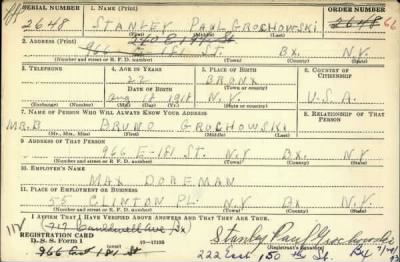 SERIAL NUMBER 1. NAME (Print) ORDER NUMBER
2648 STANLEY PAUL GROCHOWSKI 2648
(First) (Middle) (Last)
2. ADDRESS (Print)
966 E 181 ST. BX. N.Y.
(Number and street or R. F. D. number) (Town) (County) (State)
3. TELEPHONE 4. AGE IN YEARS 5. PLACE OF BIRTH 6. COUNTRY OF CITIZENSHIP
22 BRONX
DATE OF BIRTH (Town or county)
1918 N.Y. U.S.A.
(Exchange) (Number) (Mo.) (Day) (Yr.) (State or country)
7. NAME OF PERSON WHO WILL ALWAYS KNOW YOUR ADDRESS 8. RELATIONSHIP OF THAT PERSON
MR. BRUNO GROCHOWSKI
(Mr., Mrs., Miss) (First) (Middle) (Last)
9. ADDRESS OF THAT PERSON
966 E-181 ST. N.Y BX. N.Y.
(Number and street or R. F. D. number) (Town) (County) (State)
10. EMPLOYER'S NAME
MAX DOREMAN
11. PLACE OF EMPLOYMENT OR BUSINESS
55 CLINTON PL. N.Y BX N.Y.
(Number and street or R. F. D. number) (Town) (County) (State)
I AFFIRM THAT I HAVE VERIFIED ABOVE ANSWERS AND THAT THEY ARE TRUE.
REGISTRATION CARD
D. S. S. Form 1 16—17105 Stanley Paul Grochowski
(over) (Registrant's signature)
966 East 181 St 222 East 150 th St. Bx